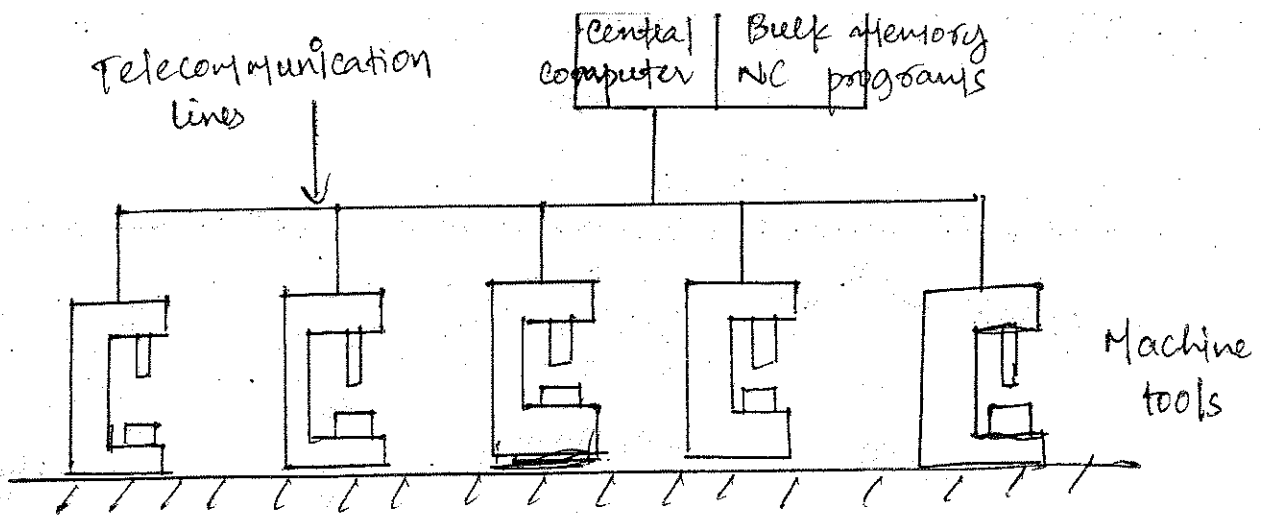 Telecommunication
lines
Central
computer
Bulk Memory
NC programs
Machine
tools